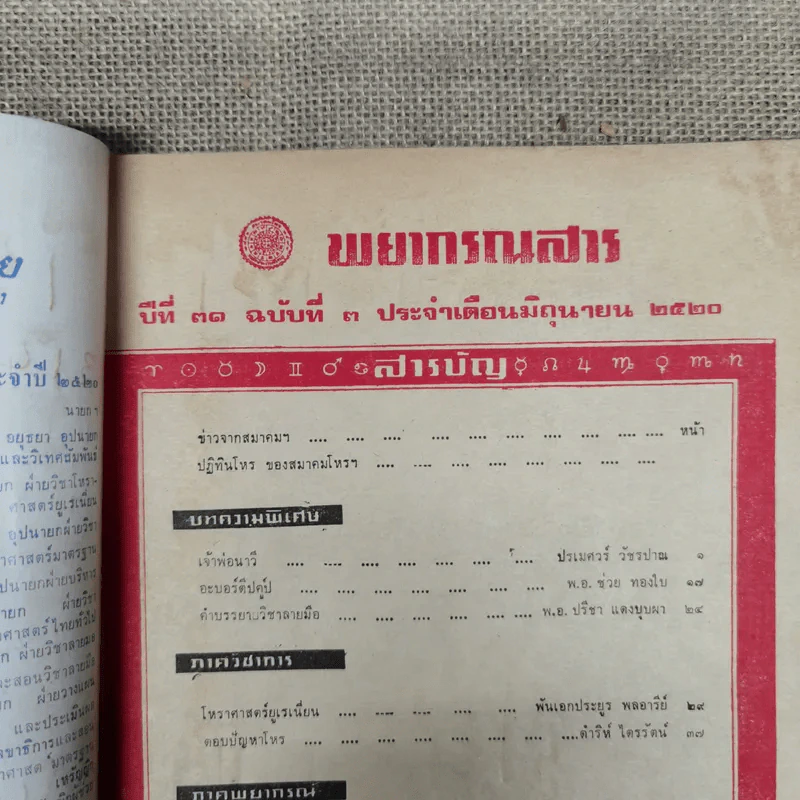 ย
ะจำปี ๒๕๒๐
นายกฯ
อยุธยา อุปนายก
และวิเทศสัมพันธ์
ยก ฝ่ายวิชาโหรา-
ศาสตร์ยูเรเนี่ยน
อุปนายกฝ่ายวิชา
าศาสตร์มาตรฐาน
ปนายกฝ่ายบริหาร
ายก ฝ่ายวิชา
าศาสตร์ไทยทั่วไป
ก ฝ่ายวิชาลายมือ
ะสอนวิชาลายมือ
ก ฝ่ายวางแผน
และประเมินผล
ลขาธิการและสอน
าศาสตร์มาตรฐาน
เหรัญญิก
พยากรณสาร
ปีที่ ๓๑ ฉบับที่ ๓ ประจำเดือนมิถุนายน ๒๕๒๐
♈ ☉ ♉ ☽ ♊ ♂ ♋ สารบัญ ☿ ♌ ♃ ♍ ♀ ♏ ♄
ข่าวจากสมาคมฯ .... .... .... .... .... .... .... .... .... .... หน้า
ปฏิทินโหร ของสมาคมโหรฯ .... .... .... .... .... .... .... ....
บทความพิเศษ
เจ้าพ่อนาวี .... .... .... .... .... .... .... ปรเมศวร์ วัชรปาณ ๑
อะบอร์ติปคู๊ป .... .... .... .... .... .... .... พ.อ. ช่วย ทองใบ ๑๗
คำบรรยายวิชาลายมือ .... .... .... .... .... พ.อ. ปรีชา แดงบุบผา ๒๔
ภาควิชาการ
โหราศาสตร์ยูเรเนี่ยน .... .... .... .... .... พันเอกประยูร พลอารีย์ ๒๙
ตอบปัญหาโหร .... .... .... .... .... .... .... ....ดำริห์ ไตรรัตน์ ๓๗
ภาคพยากรณ์